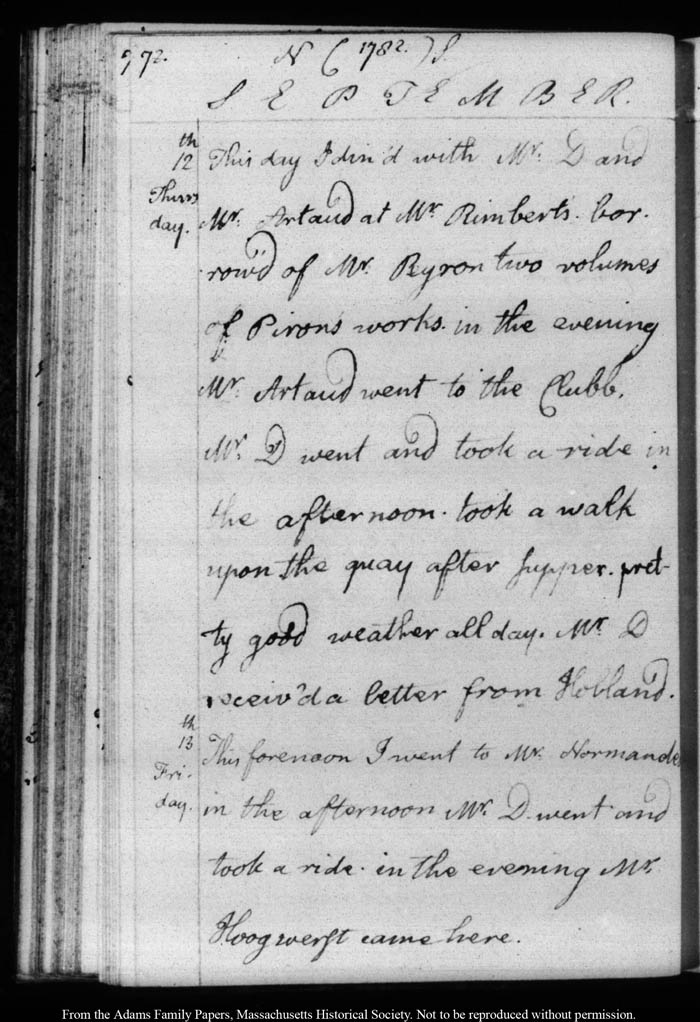 372. N (1782.) S.
SEPTEMBER.
12th This day I din'd with Mr. D and
Thursday. Mr. Artaud at Mr. Rimberts. bor-
row'd of Mr. Ryron two volumes
of Pirons works. in the evening
Mr. Artaud went to the Clubb.
Mr. D went and took a ride in
the afternoon. took a walk
upon the quay after supper. pret-
ty good weather all day. Mr. D
receiv'd a letter from Holland.
13th This forenoon I went to Mr. Normande
Friday. in the afternoon Mr. D. went and
took a ride. in the evening Mr.
Hoogwerft came here.
From the Adams Family Papers, Massachusetts Historical Society. Not to be reproduced without permission.